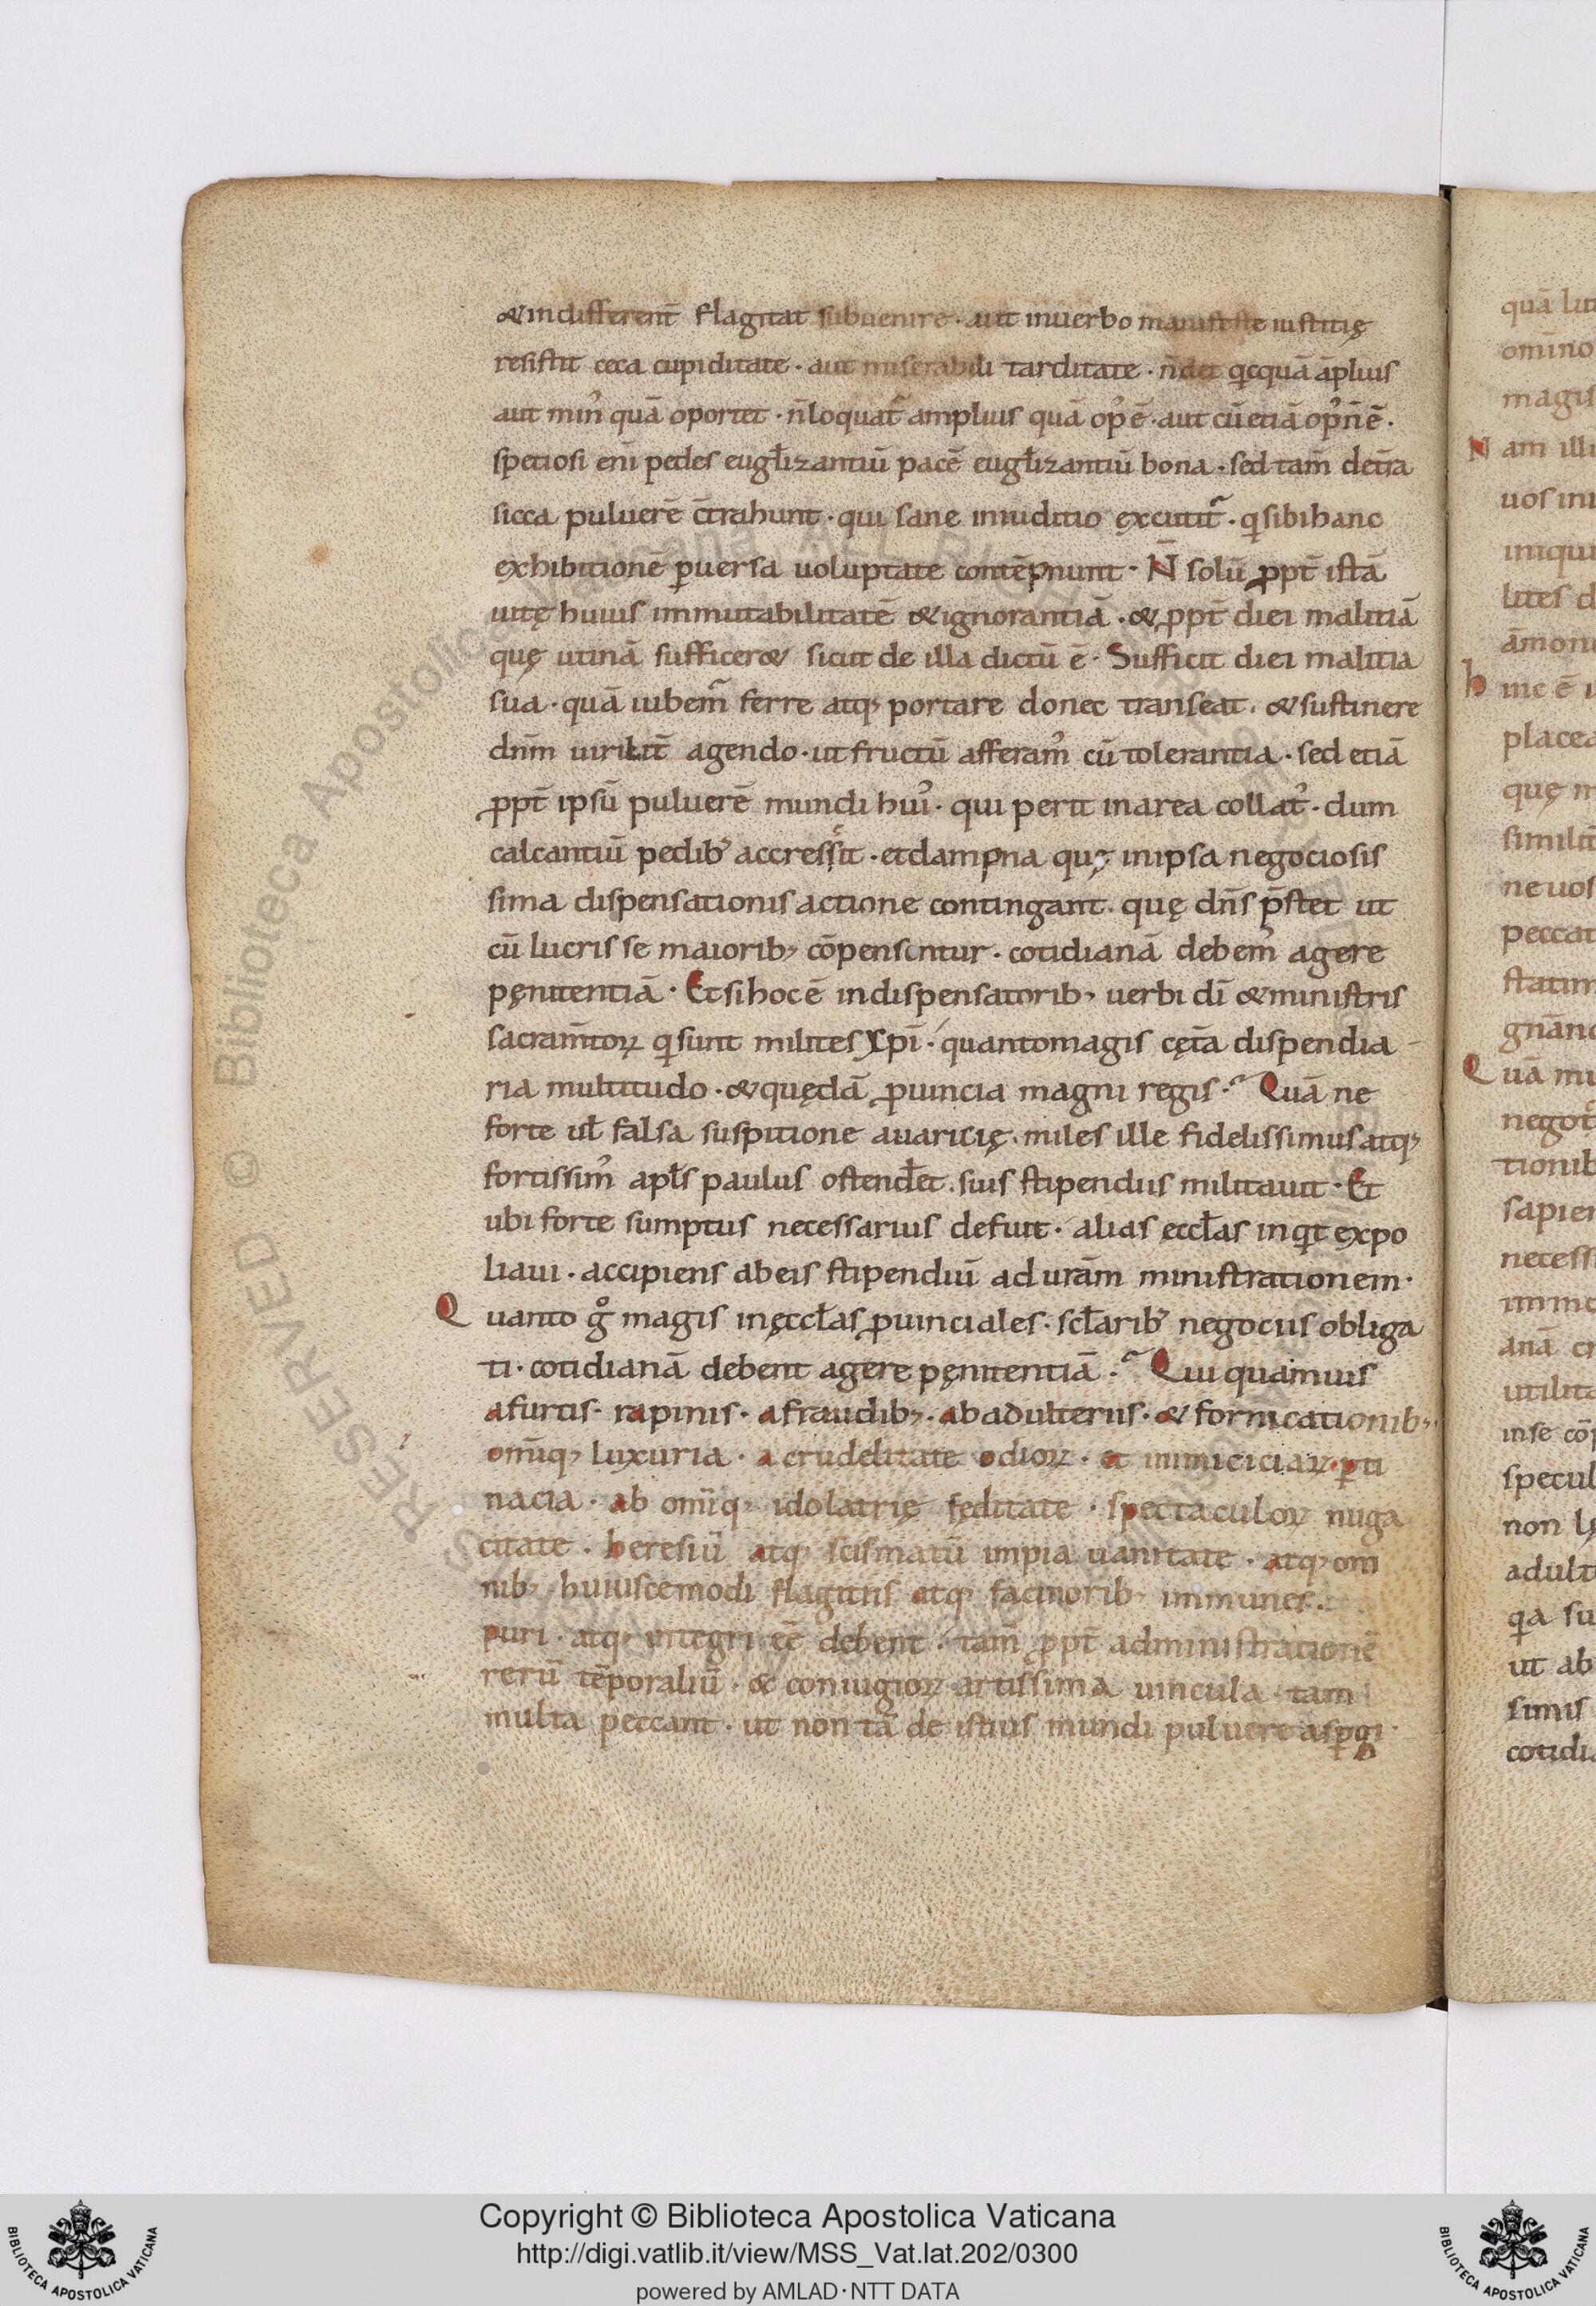 & indifferent̄ flagitat subuenire · aut inuerbo manifeste iustitię
resistit ceca cupiditate · aut miserabili tarditate · n̄det qͥcquā āplius
aut minꝰ quā oportet · n̄loquat᷑ amplius quā opꝰ ē · aut cū etiā opꝰ n̄ ē ·
speciosi eni̅ pedes eugl̄izantiū pacē eugl̄izantiū bona · sed tam̄ det̄ra
sicca puluerē c̄trahunt · qui sane iniuditio excutit᷑ · qͥ sibi hanc
exhibitionē ꝑuersa uoluptate contēpnunt · N̄ solū ꝓpt̄ istā
uitę huius immutabilitatē & ignorantiā · & ꝓpt̄ diei malitiā
quę utinā sufficeret sicut de illa dictū ē · Sufficit diei malitia
sua · quā iubem᷑ ferre atqꝫ portare donec transeat · & sustinere
dn̄m uirilit̄ agendo · ut fructū afferamꝰ cū tolerantia · sed etiā
ꝓpt̄ ipsū puluerē mundi huiꝰ · qui perit inarea collatꝰ · dum
calcantiū pedibꝰ accressit · et dampna quę inipsa negociosis
sima dispensationis actione contingant · quę dn̄s p̄stet ut
cū lucris se maioribꝫ cōpensentur · cotidianā debemꝰ agere
pęnitentiā · Et si hoc ē indispensatoribꝫ uerbi dī & ministris
sacram̄toꝝ qͥ sunt milites xp̄i · quantomagis cęt̄a dispendia
ria multitudo · & quędā ꝓuincia magni regis · Quā ne
forte ul̄ falsa suspitione auaricię · miles ille fidelissimus atqꝫ
fortissimꝰ apl̄s paulus ostendet̄ · suis stipendiis militauit · Et
ubi forte sumptus necessarius defuit · alias ęccl̄as inqͥt expo
liaui · accipiens abeis stipendiū ad urām ministrationem ·
Quanto gͦ magis inęccl̄as ꝓuinciales · scl̄aribꝰ negociis obliga
ti · cotidianā debent agere pęnitentiā · Qui quamuis
afurtis · rapinis · afraudibꝫ · ab adulteriis · & fornicationibꝫ ·
omīqꝫ luxuria · a crudelitate odioꝝ · et inimiciciaꝝ ꝑti
nacia · ab omīqꝫ idolatrię fęditate · spectaculoꝝ nuga
citate · heresiū atqꝫ scismatū impia uanitate · atqꝫ om
nibꝫ huiuscemodi flagitiis atqꝫ facinoribꝫ immunes ·
puri · atqꝫ integri eē debent · tam̄ ꝓpt̄ administrationē
rerū tēporaliū · & coniugioꝝ artissima uincula · tam
multa peccant · ut non tā de istius mundi puluere aspꝑgi
quā
omīno
magis
Nam illi
placea
quę
ne uos
peccat
statim
Quā
sapien
specul
non
qͥa
ut ab
simis
cotidi
© Biblioteca Apostolica Vaticana. ALL RIGHTS RESERVED
Copyright © Biblioteca Apostolica Vaticana
http://digi.vatlib.it/view/MSS_Vat.lat.202/0300
powered by AMLAD·NTT DATA
BIBLIOTECA APOSTOLICA VATICANA
BIBLIOTECA APOSTOLICA VATICANA